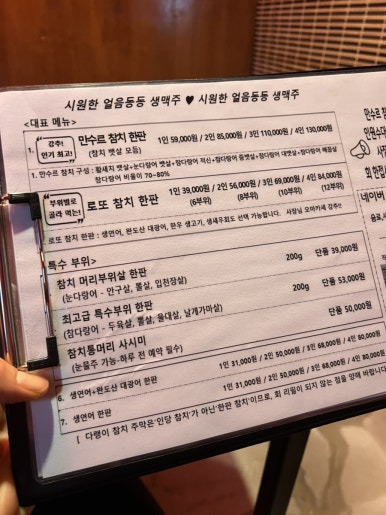 시원한 얼음동동 생맥주 ♥ 시원한 얼음동동 생맥주
<대표 메뉴>
1. 강추! 인기 최고! 만수르 참치 한판 1인 59,000원 / 2인 85,000원 / 3인 110,000원 / 4인 130,000원
(참치 뱃살 모듬)
1. 만수르 참치 구성 : 황새치 뱃살+눈다랑어 뱃살+참다랑어 적신+참다랑어 중뱃살+참다랑어 대뱃살+참다랑어 배꼽살
참다랑어 비율이 70~80%
부위별로 골라 먹는! 로또 참치 한판 1인 39,000원 / 2인 56,000원 / 3인 69,000원 / 4인 94,000원
(6부위) (8부위) (10부위) (12부위)
로또 참치 한판 : 생연어, 완도산 대광어, 한우 생고기, 생새우회도 선택 가능합니다. 사장님 오마카세 강추!!
특수 부위>
참치 머리부위살 한판 200g 단품 39,000원
(눈다랑어 - 안구살, 뽈살, 입천장살)
최고급 특수부위 한판 200g 단품 53,000원
(참다랑어 - 두육살, 뽈살, 울대살, 날개가마살)
참치통머리 사시미 단품 50,000원
(눈물주 가능-하루 전 예약 필수)
6. 생연어+완도산 대광어 한판 1인 31,000원 / 2인 50,000원 / 3인 68,000원 / 4인 80,000원
7. 생연어 한판 1인 31,000원 / 2인 50,000원 / 3인 68,000원 / 4인 80,000원
[ 다랭이 참치 주막은'인당 참치'가 아닌'한판 참치'이므로, 회 리필이 되지 않는 점을 양해 바랍니다.
만수르 참
네이버